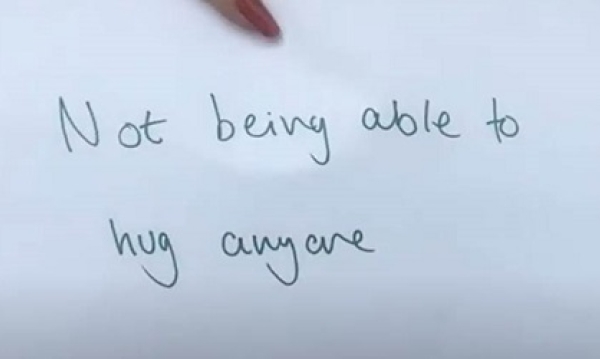 Not being able to
hug anyone